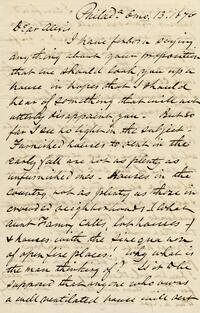 Philad.a 8mo. 13. 1870
Dear Alexis
I have forborn saying
anything about your proposition
that we should look you up a
house in hopes that I should
hear of something that will not
utterly disappoint you. But so
far I see no light on the subject.
Furnished houses to rent in the
early fall are not as plenty as
unfurnished ones. Houses in the
country not as plenty as those in
crowded neighborhoods, & what
aunt Fanny calls,
& houses with the sine qua non
of open fire places! Why what is
the man thinking of? Is it to be
supposed that anyone who owns
a well ventilated house will rent